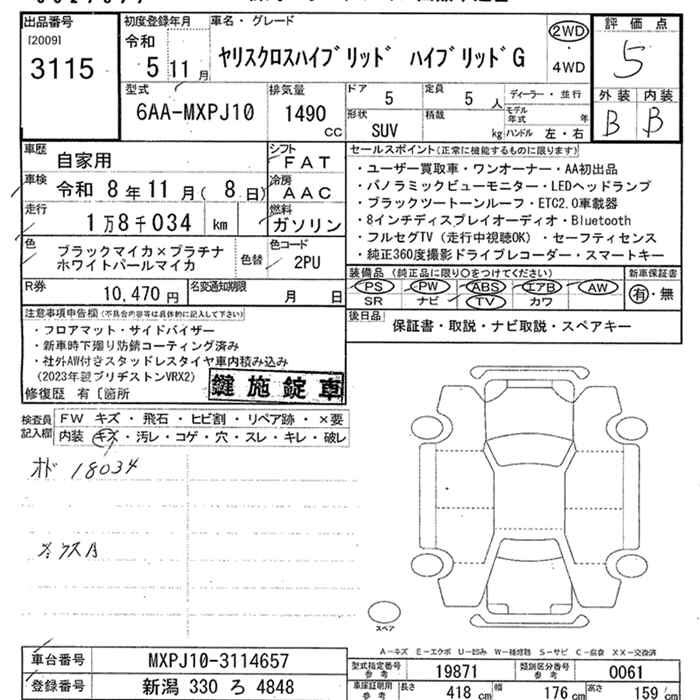 出品番号
[2009]
3115
初度登録年月
令和
5年11月
車名・グレード
ヤリスクロスハイブリッド ハイブリッドG
2WD
・
4WD
評価点
5
外装 内装
B B
型式
6AA-MXPJ10
排気量
1490
CC
ドア
5
定員
5 人
形状
SUV
積載
kg
ディーラー・並行
モデル年式 年
ハンドル 左・右
車歴
自家用
シフト
FAT
車検
令和 8年11月( 8日)
冷房
AAC
走行
1万8千034 km
燃料
ガソリン
色
ブラックマイカ×プラチナ
ホワイトパールマイカ
色替
色コード
2PU
R券
10,470 円
名変通知期限
月 日
セールスポイント(正常に機能するものに限ります)
・ユーザー買取車・ワンオーナー・AA初出品
・パノラミックビューモニター・LEDヘッドランプ
・ブラックツートーンルーフ・ETC2.0車載器
・8インチディスプレイオーディオ・Bluetooth
・フルセグTV(走行中視聴OK)・セーフティセンス
・純正360度撮影ドライブレコーダー・スマートキー
装備品(純正品に限り○をつけてください)
PS PW ABS エアB AW
SR ナビ TV カワ
新車保証書
有・無
後日品
保証書・取説・ナビ取説・スペアキー
注意事項申告欄(不具合内容等は具体的に記入して下さい)
・フロアマット・サイドバイザー
・新車時下廻り防錆コーティング済み
・社外AW付きスタッドレスタイヤ車内積み込み
(2023年製ブリヂストンVRX2)
鍵施錠車
修復歴 有〔箇所
検査員
記入欄
FW キズ・飛石・ヒビ割・リペア跡・×要
内装 キズ・汚レ・コゲ・穴・スレ・キレ・破レ
オド 18034
スペア
A-キズ E-エクボ U-凹み W-補修跡 S-サビ C-腐食 XX-交換済
車台番号
MXPJ10-3114657
登録番号
新潟 330 ろ 4848
型式指定番号
参考
19871
類別区分番号
参考
0061
車検証明用
参考
長さ 418 cm
幅 176 cm
高さ 159 cm